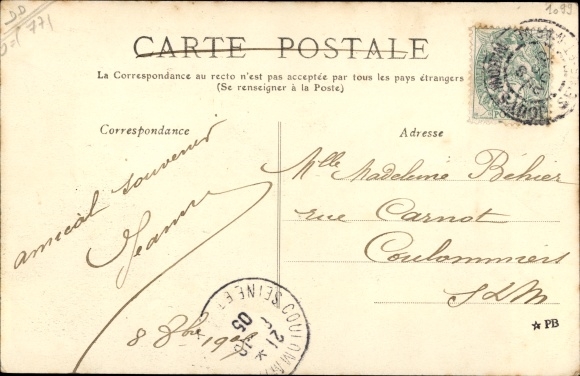 DD
771
1099
CARTE POSTALE
La Correspondance au recto n'est pas acceptée par tous les pays étrangers
(Se renseigner à la Poste)
Correspondance
Adresse
amical souvenir
Jeanne
8 8bre 1905
Mlle Madeleine Béhier
rue Carnot
Coulommiers
S&M
COULOMM
SEINE ET
21
05
★ PB